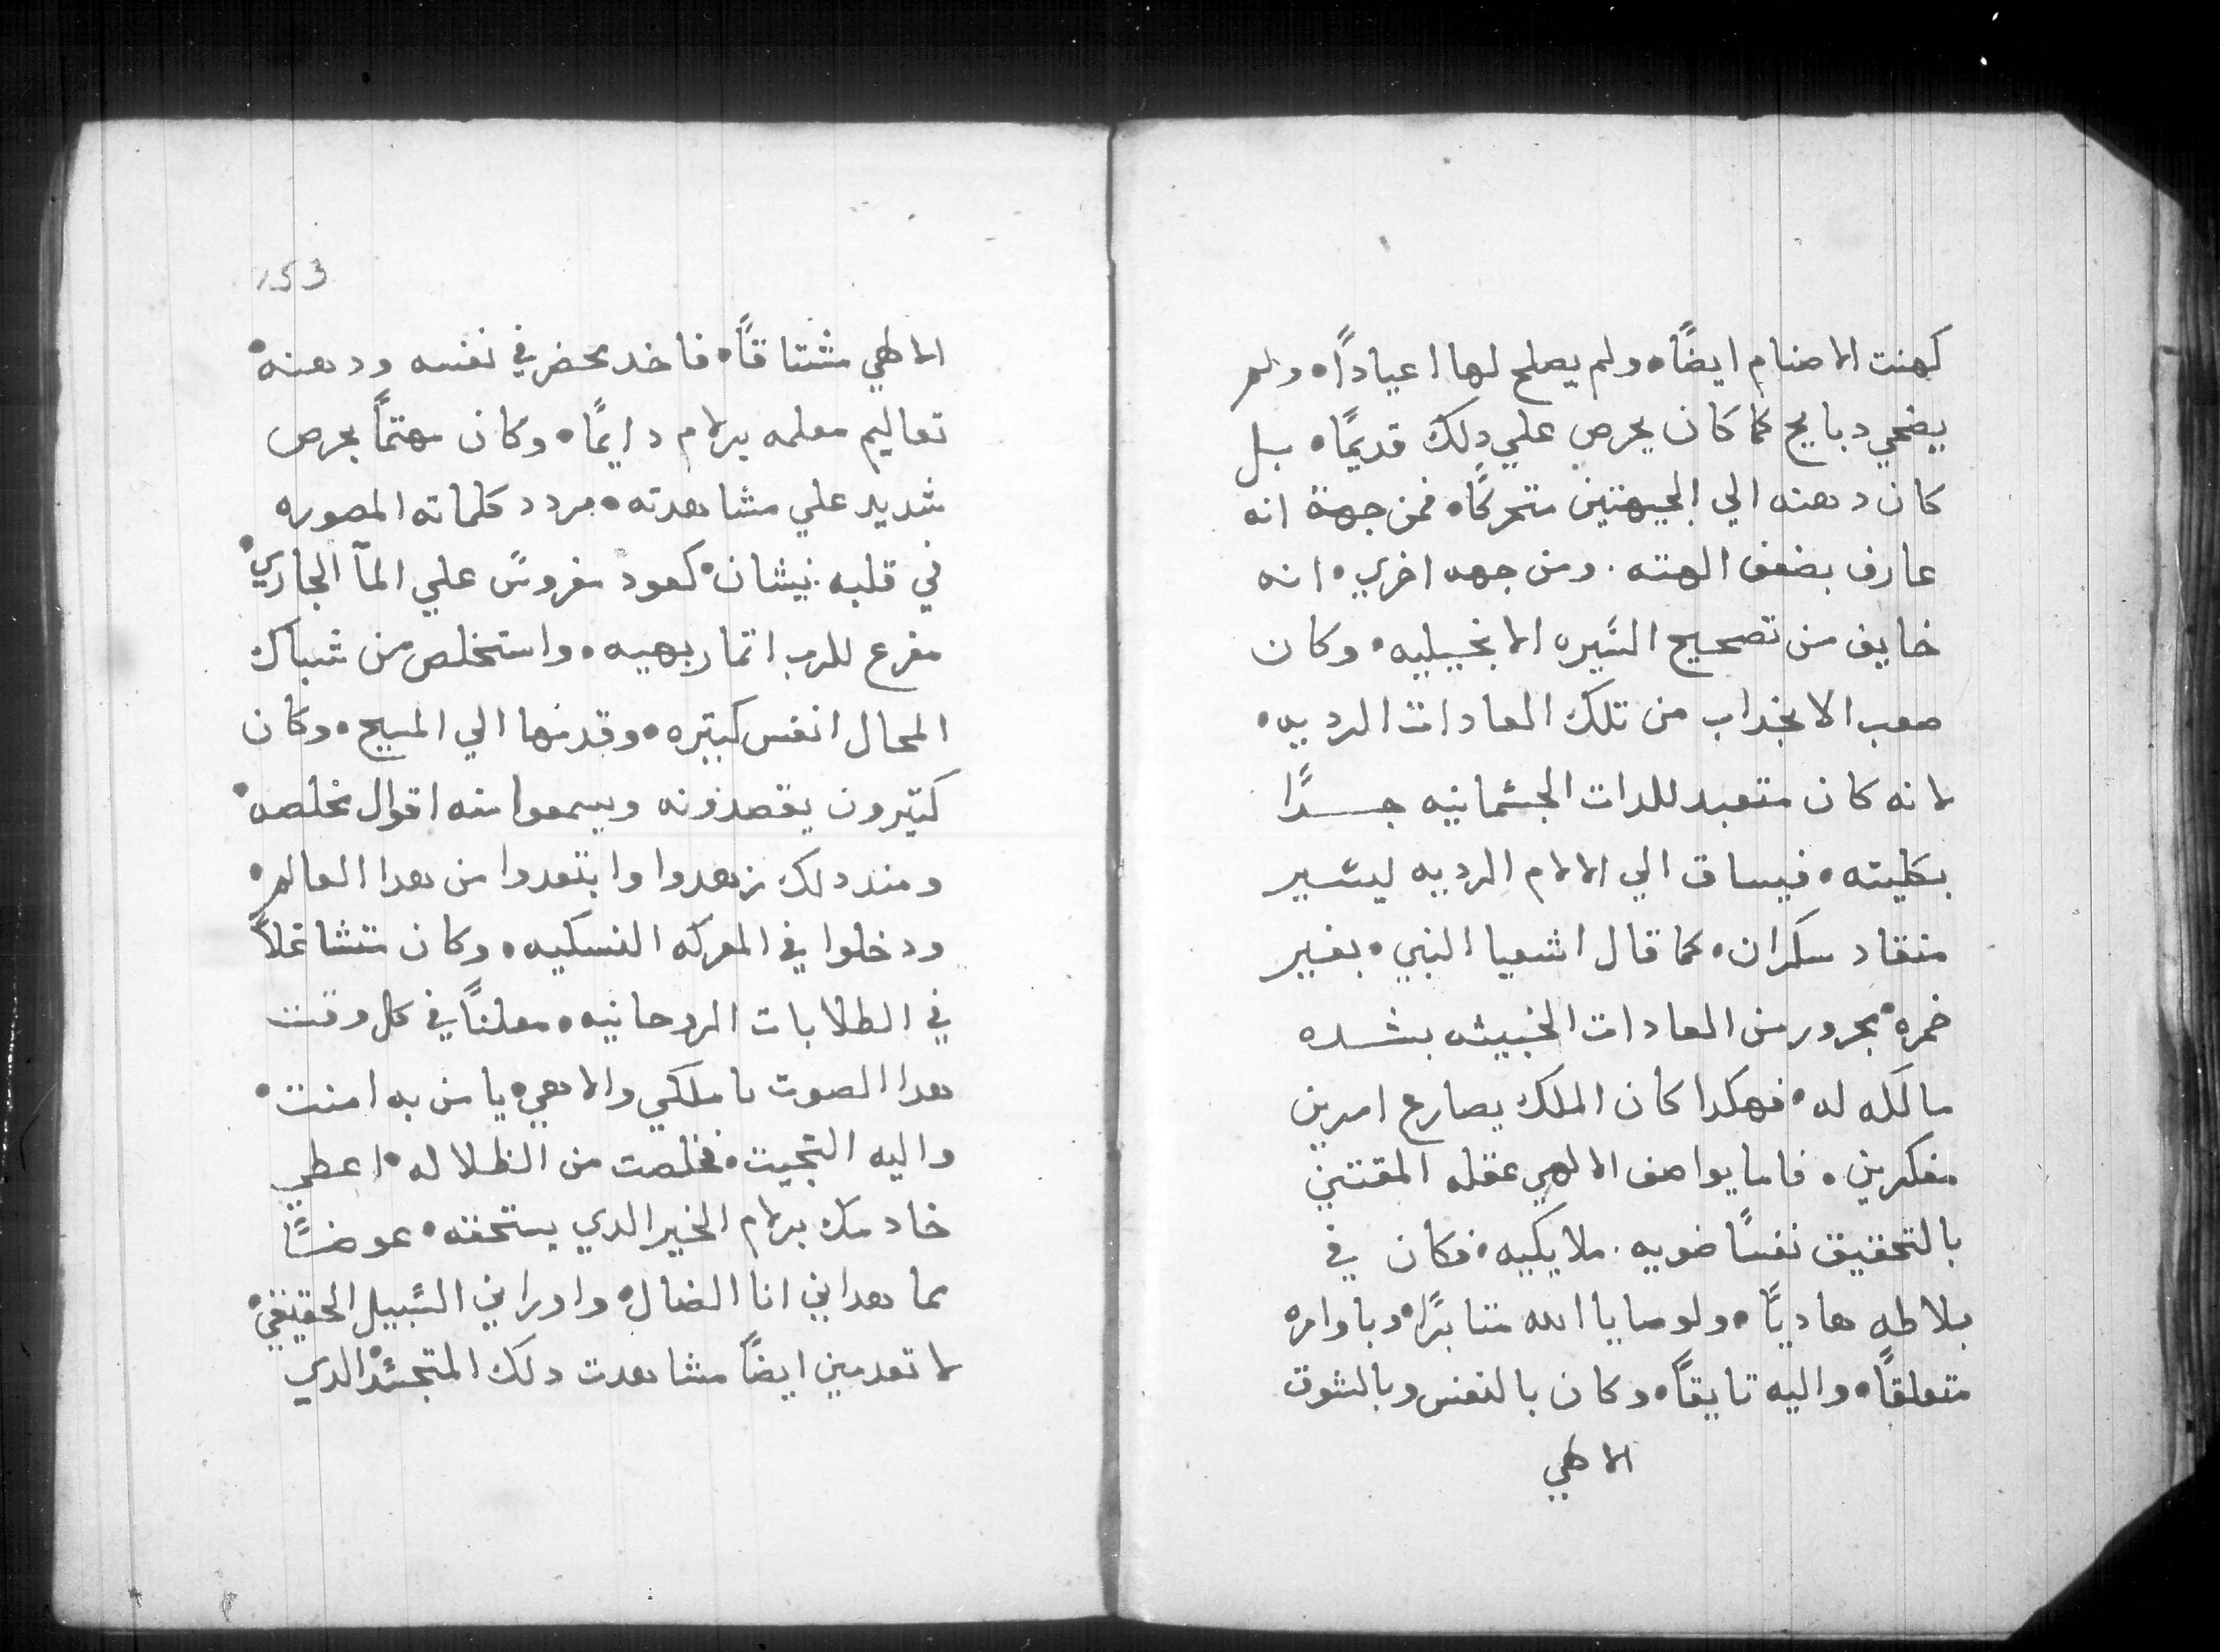 كهنت الاصنام ايضًا• ولم يصلح لها اعيادًا• ولم
يضحي دبايح كما كان يحرص علي دلك قديمًا• بل
كان دهنه الي الجيهتين متحركًا• فمن جهة انه
عارف بضعف الهته. ومن جهه اخري• انه
خايف من تصحيح السيره الانجيليه• وكان
صعب الانجداب من تلك العادات الرديه•
لانه كان متعبد للدات الجسمانيه جدًا
بكليته• فيساق الي الالام الرديه ليسير
منقاد سكران• كما قال اشعيا النبي• بغير
خمره• مجرور من العادات الخبيثه بشده
مالكه له• فهكدا كان الملك يصارع امرين
مفكرين• فاما يواصف الالهي عقله المقتني
بالتحقيق نفسًا ضويه. ملايكيه• فكان في
بلاطه هاديًا• ولوصايا الله متابرًا• وباوامره
متعلقًا• واليه تايقًا• وكان بالنفس وبالشوق
الالهي
153
الالهي مشتاقًا• فاخد يحضر في نفسه ودهنه•
تعاليم معلمه برلام دايمًا• وكان مهتمًا بحرص
شديد علي مشاهدته• مردد كلماته المصوره
في قلبه نيشان• كعود مغروس علي المآ الجاري•
مفرع للرب اتمار بهيه• واستخلص من شباك
المحال انفس كتيره• وقدمها الي المسيح• وكان
كتيرون يقصدونه ويسمعوا منه اقوال مخلصه•
ومند دلك زهدوا وابتعدوا من هدا العالم•
ودخلوا في المعركه النسكيه• وكان متشاغلاً
في الطلابات الروحانيه• معلنًا في كل وقت
هدا الصوت يا ملكي والاهي• يا من به امنت•
واليه التجيت• فخلصت من الظلاله• اعطي
خادمك برلام الخير الدي يستحقه• عوضًا
مما هداني انا الضال• واوراني السبيل الحقيقي•
لا تعدمني ايضًا مشاهدت دلك المتجسد الدي